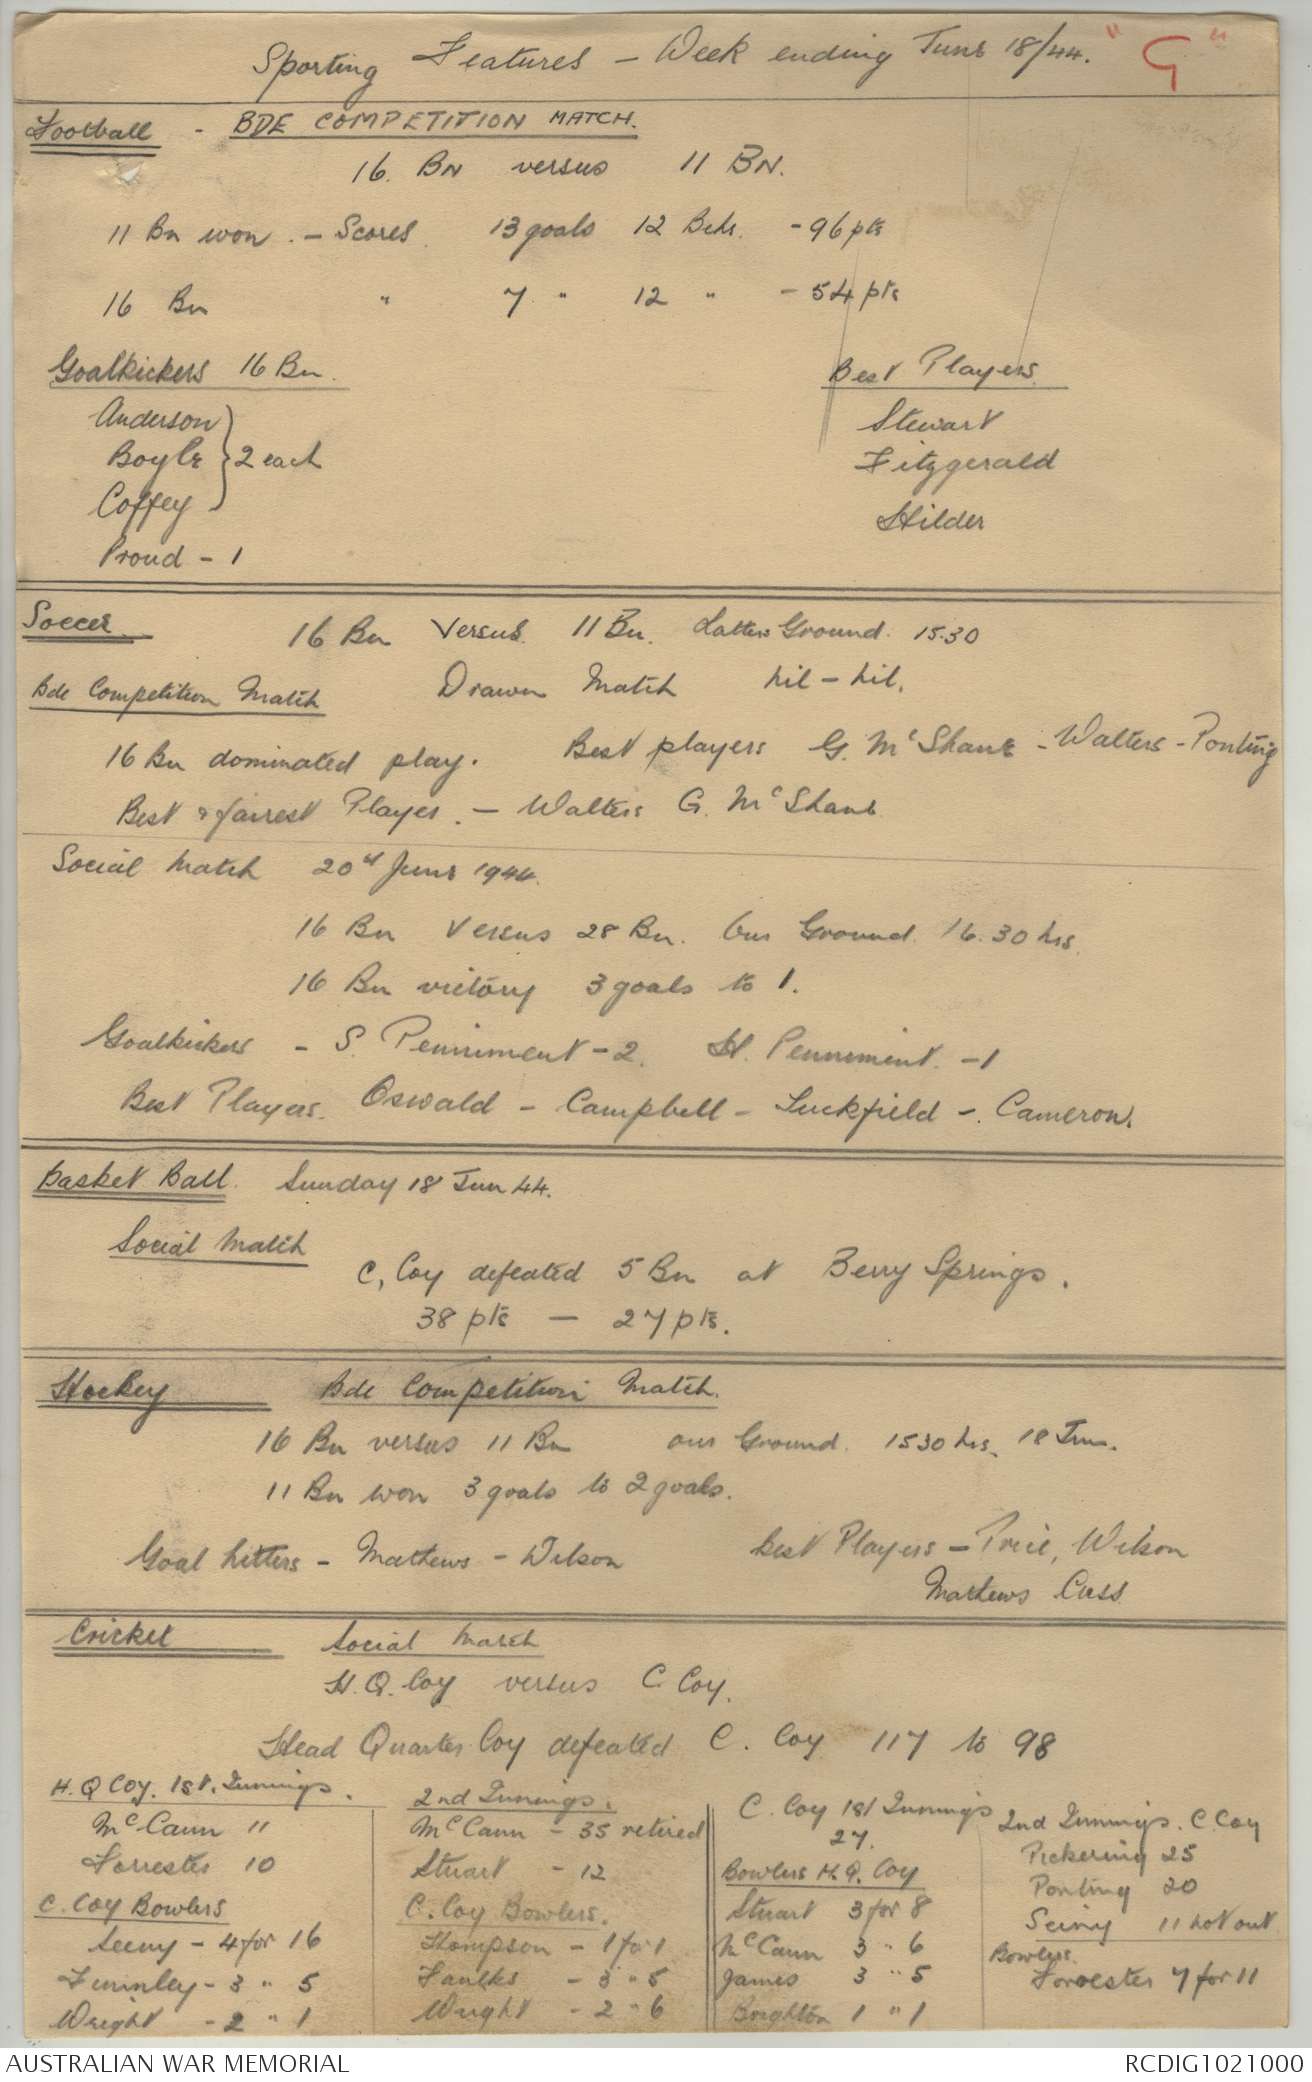 Sporting Features - Week ending June 18/44. "G"
Football - BDE COMPETITION MATCH.
16. BN versus 11 BN.
11 Bn won. - Scores. 13 goals 12 Behs. - 96 pts
16 Bn " 7 " 12 " - 54 pts
Goalkickers 16 Bn.
Anderson
Boyle } 2 each
Coffey
Proud - 1
Best Players.
Stewart
Fitzgerald
Hilder
Soccer 16 Bn Versus 11 Bn. Latters Ground. 15.30
Bde Competition Match Drawn Match nil - nil.
16 Bn dominated play. Best players G. McShane - Walters - Ponting
Best & fairest Player. - Walters G. McShane
Social Match 20th June 1944.
16 Bn Versus 28 Bn. Our Ground. 16.30 hrs.
16 Bn victory 3 goals to 1.
Goalkickers - S. Penniment - 2. H. Penniment. - 1
Best Players. Oswald - Campbell - Luckfield - Cameron.
Basket Ball. Sunday 18 Jun 44.
Social Match
C, Coy defeated 5 Bn at Berry Springs.
38 pts - 27 pts.
Hockey Bde Competition Match.
16 Bn versus 11 Bn our Ground. 1530 hrs. 18 Jun.
11 Bn won 3 goals to 2 goals.
Goal hitters - Mathews - Wilson
Best Players - Price, Wilson
Mathews Cass
Cricket Social Match
H.Q. Coy versus C. Coy.
Head Quarter Coy defeated C. Coy 117 to 98
H.Q Coy. 1st. Innings.
McCann 11
Forrester 10
C. Coy Bowlers
Seeny - 4 for 16
- 3 " 5
Wright - 2 " 1
2nd Innings.
McCann - 35 retired
Stuart - 12
C. Coy Bowlers.
Thompson - 1 for 1
Faulks - 3 " 5
Wright - 2 " 6
C. Coy 1st Innings
27.
Bowlers H.Q. Coy
Stuart 3 for 8
McCann 3 " 6
James 3 " 5
Brighton 1 " 1
2nd Innings. C. Coy
Pickering 25
Ponting 20
11 not out
Bowlers.
Forrester 7 for 11
AUSTRALIAN WAR MEMORIAL RCDIG1021000